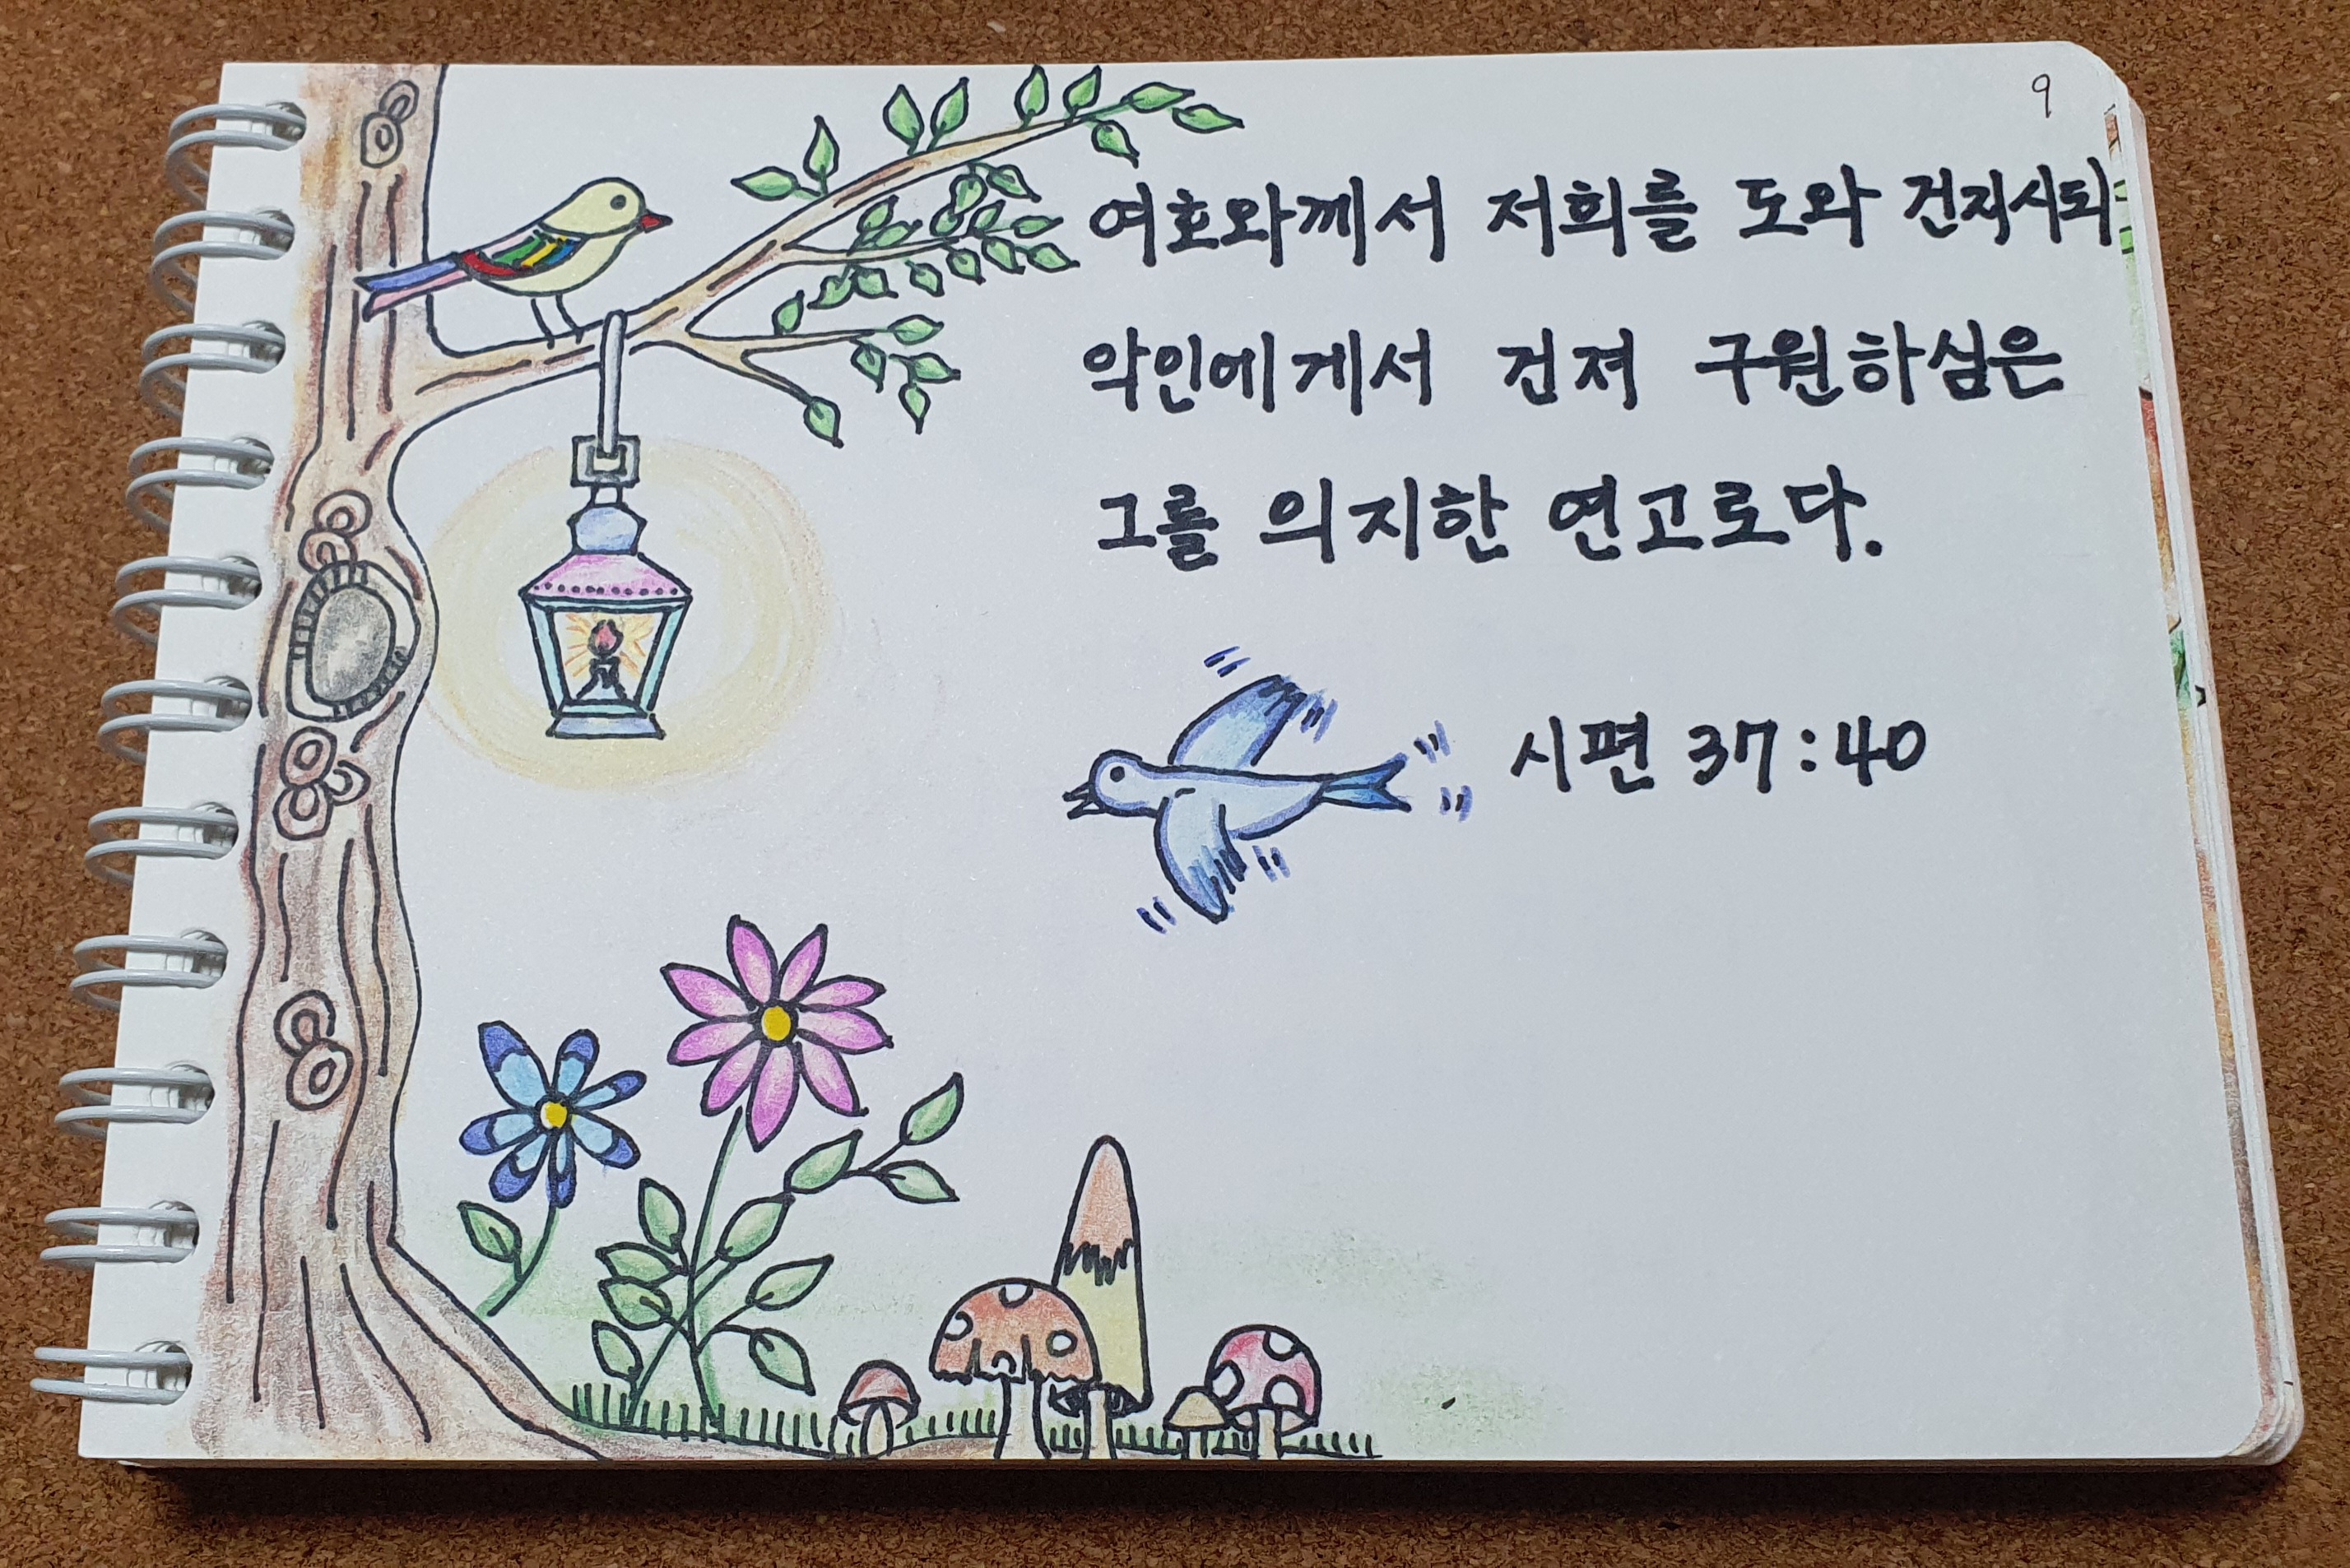 9
여호와께서 저희를 도와 건지시되
악인에게서 건져 구원하심은
그를 의지한 연고로다.
시편 37:40